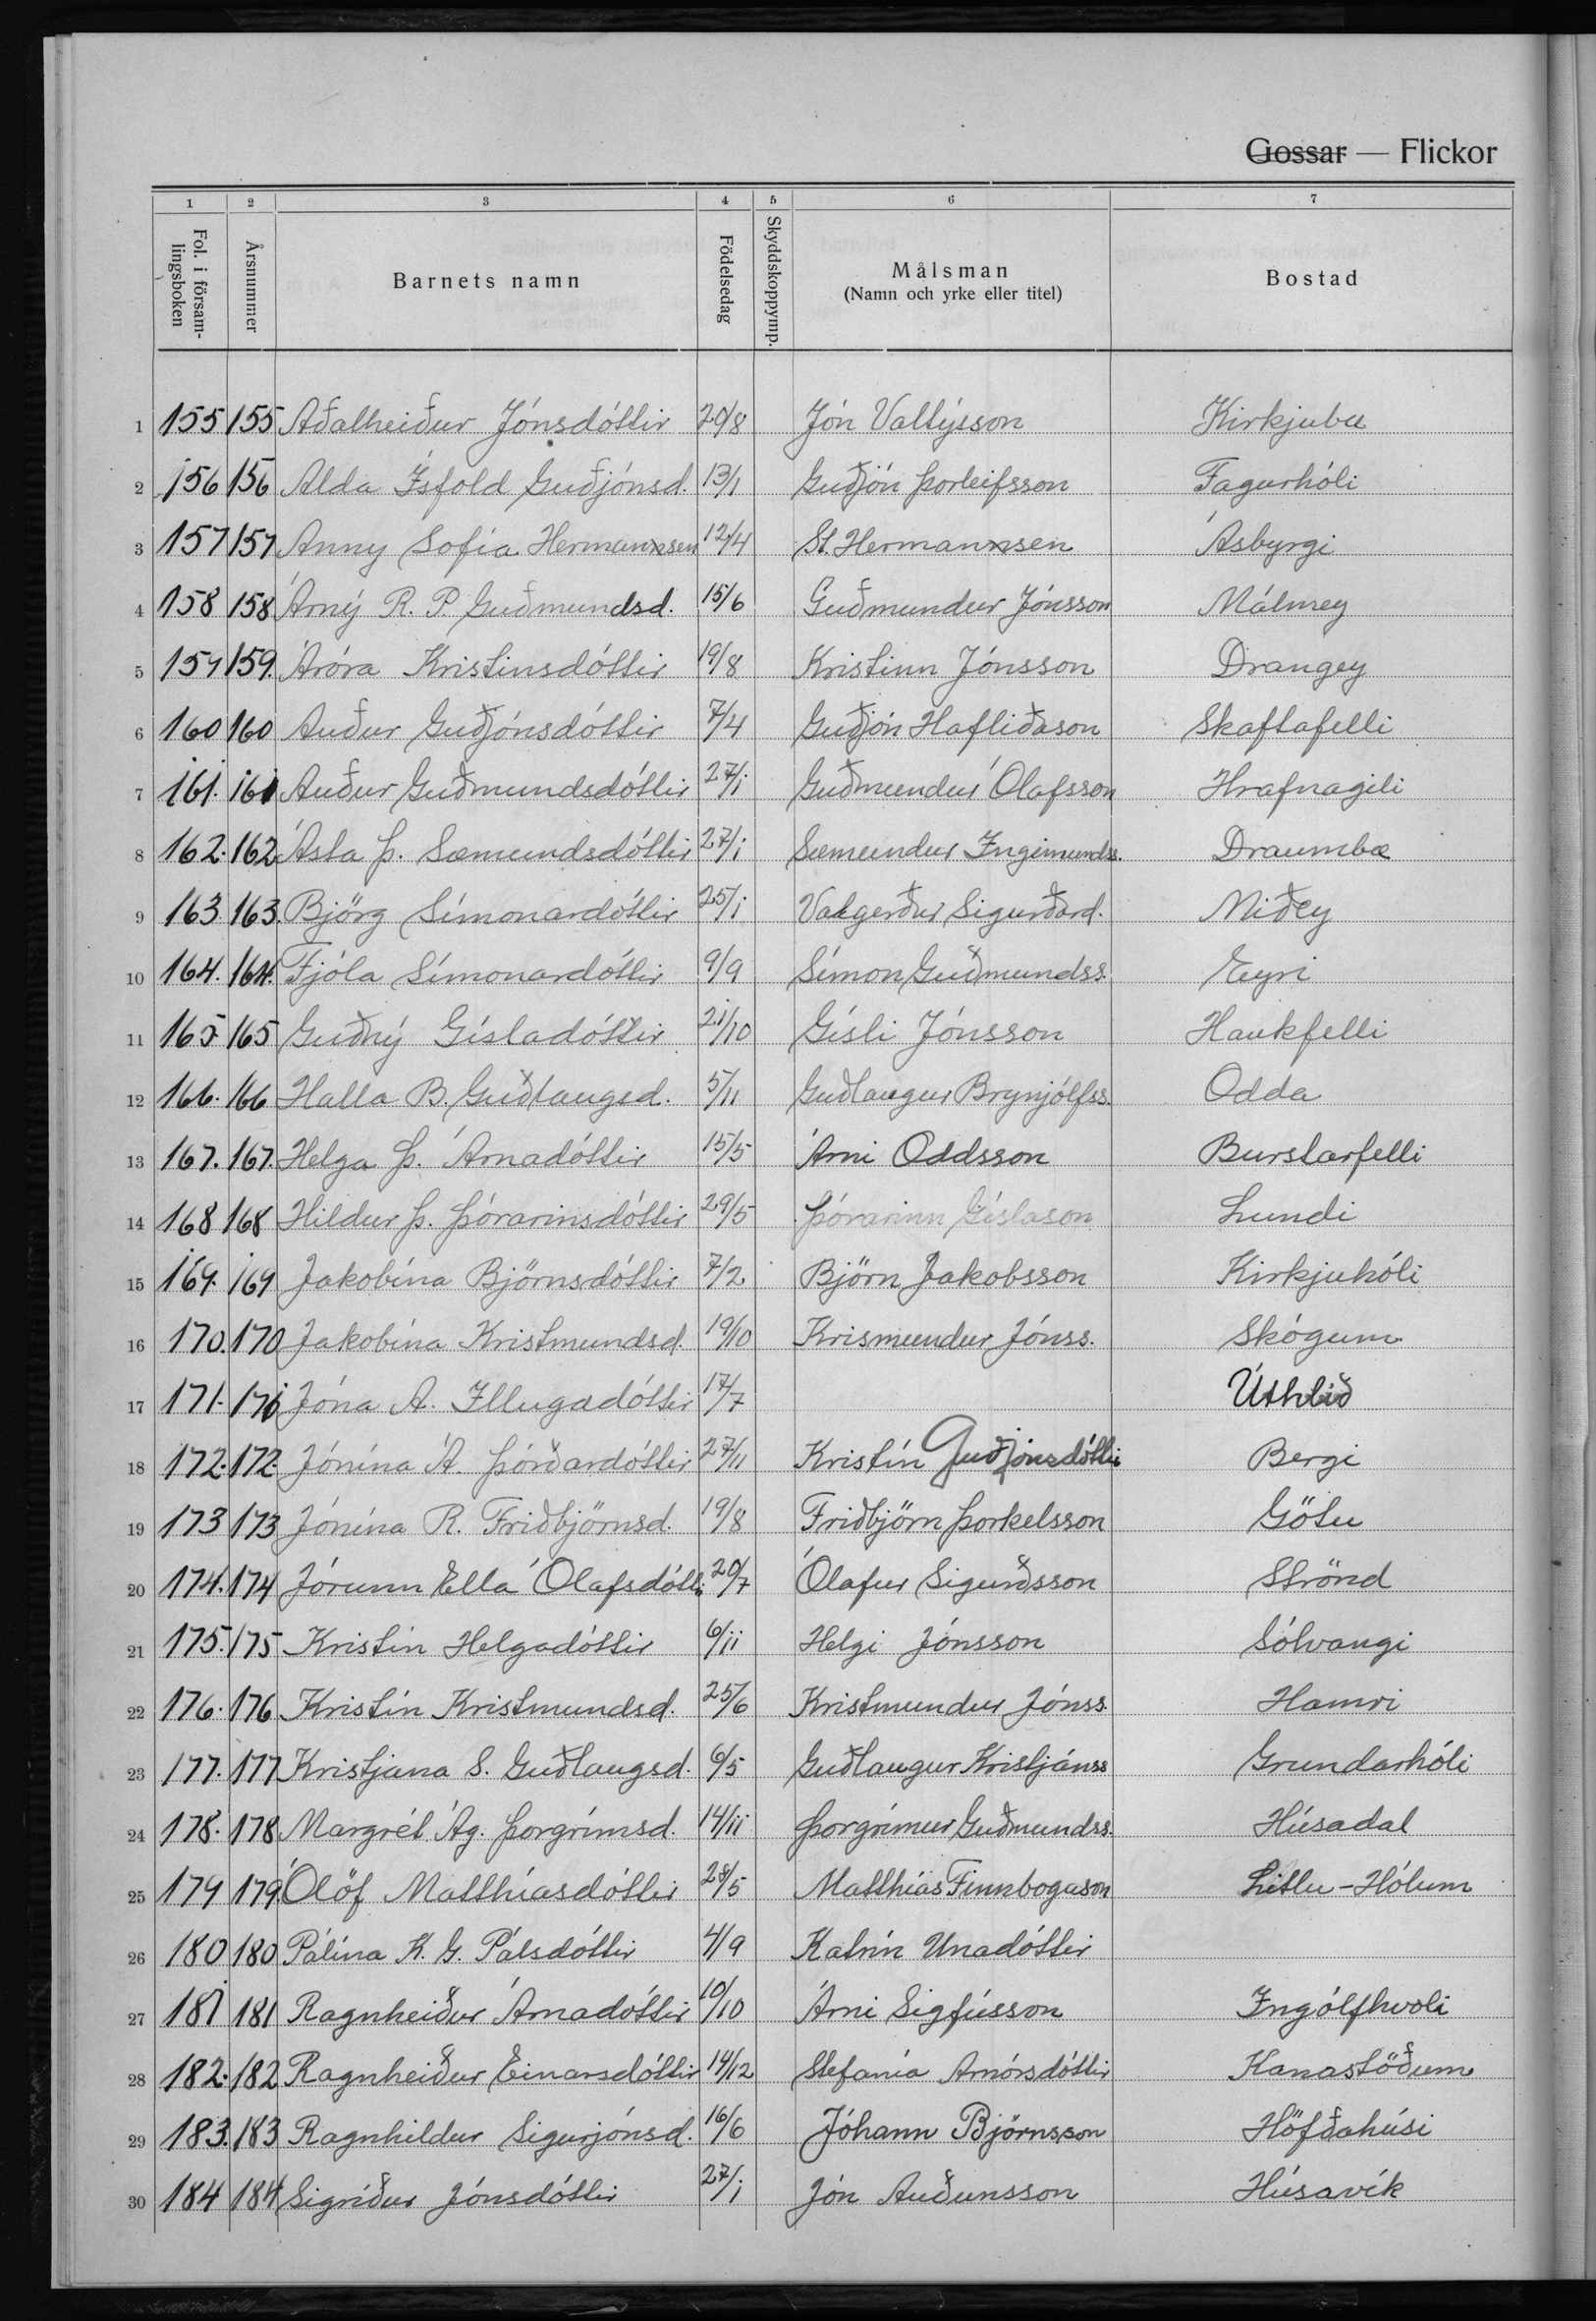 Gossar — Flickor
1 2 3 4 5 6 7
Fol. i församlingsboken Årsnummer Barnets namn Födelsedag Skyddskoppymp. Målsman (Namn och yrke eller titel) Bostad
1 155 155 Aðalheiður Jónsdóttir 20/8 Jón Valtýsson Kirkjubæ
2 156 156 Alda Ísfold Guðjónsd. 13/1 Guðjón Þorleifsson Fagurhóli
3 157 157 Anny Sofía Hermannsen 12/4 St. Hermannsen Ásbyrgi
4 158 158 Árný R. P. Guðmundsd. 15/6 Guðmundur Jónsson Málmey
5 159 159. Áróra Kristinsdóttir 19/8 Kristinn Jónsson Drangey
6 160 160 Auður Guðjónsdóttir 7/4 Guðjón Hafliðason Skaftafelli
7 161. 161 Auður Guðmundsdóttir 27/1 Guðmundur Ólafsson Hrafnagili
8 162. 162 Ásta Þ. Sæmundsdóttir 27/1 Sæmundur Ingimundss. Draumbæ
9 163 163. Björg Símonardóttir 25/1 Valgerður Sigurðard. Miðey
10 164. 164. Fjóla Símonardóttir 9/9 Símon Guðmundss. Eyri
11 165 165 Guðný Gísladóttir 21/10 Gísli Jónsson Haukfelli
12 166. 166 Halla B. Guðlaugsd. 5/11 Guðlaugur Brynjólfss. Odda
13 167. 167. Helga Þ. Árnadóttir 15/5 Árni Oddsson Burstarfelli
14 168 168 Hildur Þ. Þórarinsdóttir 29/5 Þórarinn Gíslason Lundi
15 169. 169 Jakobína Björnsdóttir 7/2 Björn Jakobsson Kirkjuhóli
16 170. 170 Jakobína Kristmundsd. 19/10 Krismundur Jónss. Skógum
17 171. 171 Jóna A. Illugadóttir 17/7 Úthlíð
18 172. 172. Jónína Á. Þórðardóttir 27/11 Kristín Guðjónsdóttir Bergi
19 173 173 Jónína R. Friðbjörnsd. 19/8 Friðbjörn Þorkelsson Götu
20 174. 174 Jórunn Ella Ólafsdótt. 20/7 Ólafur Sigurðsson Strönd
21 175. 175 Kristín Helgadóttir 6/11 Helgi Jónsson Sólvangi
22 176. 176 Kristín Kristmundsd. 25/6 Kristmundur Jónss. Hamri
23 177. 177 Kristjana S. Guðlaugsd. 6/5 Guðlaugur Kristjánss Grundarhóli
24 178. 178 Margrét Ág. Þorgrímsd. 14/11 Þorgrímur Guðmundss. Húsadal
25 179 179. Ólöf Matthíasdóttir 28/5 Matthías Finnbogason Litlu-Hólum
26 180 180 Pálína K. G. Pálsdóttir 4/9 Katrín Unadóttir
27 181 181 Ragnheiður Árnadóttir 10/10 Árni Sigfússon Ingólfhvoli
28 182. 182 Ragnheiður Einarsdóttir 14/12 Stefanía Arnórsdóttir Kanastöðum
29 183. 183 Ragnhildur Sigurjónsd. 16/6 Jóhann Björnsson Höfðahúsi
30 184 184 Sigríður Jónsdóttir 27/1 Jón Auðunsson Húsavík